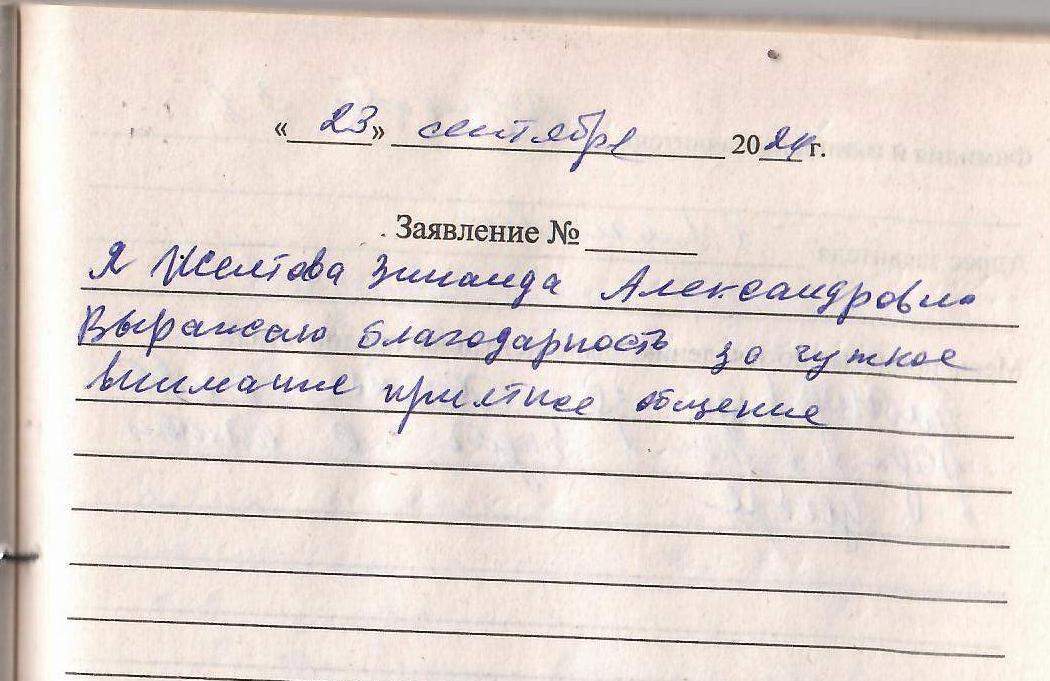 «23» сентября 2024 г.
Заявление №
Я Желтова Зинаида Александровна
Выражаю благодарность за чуткое
внимание приятное общение